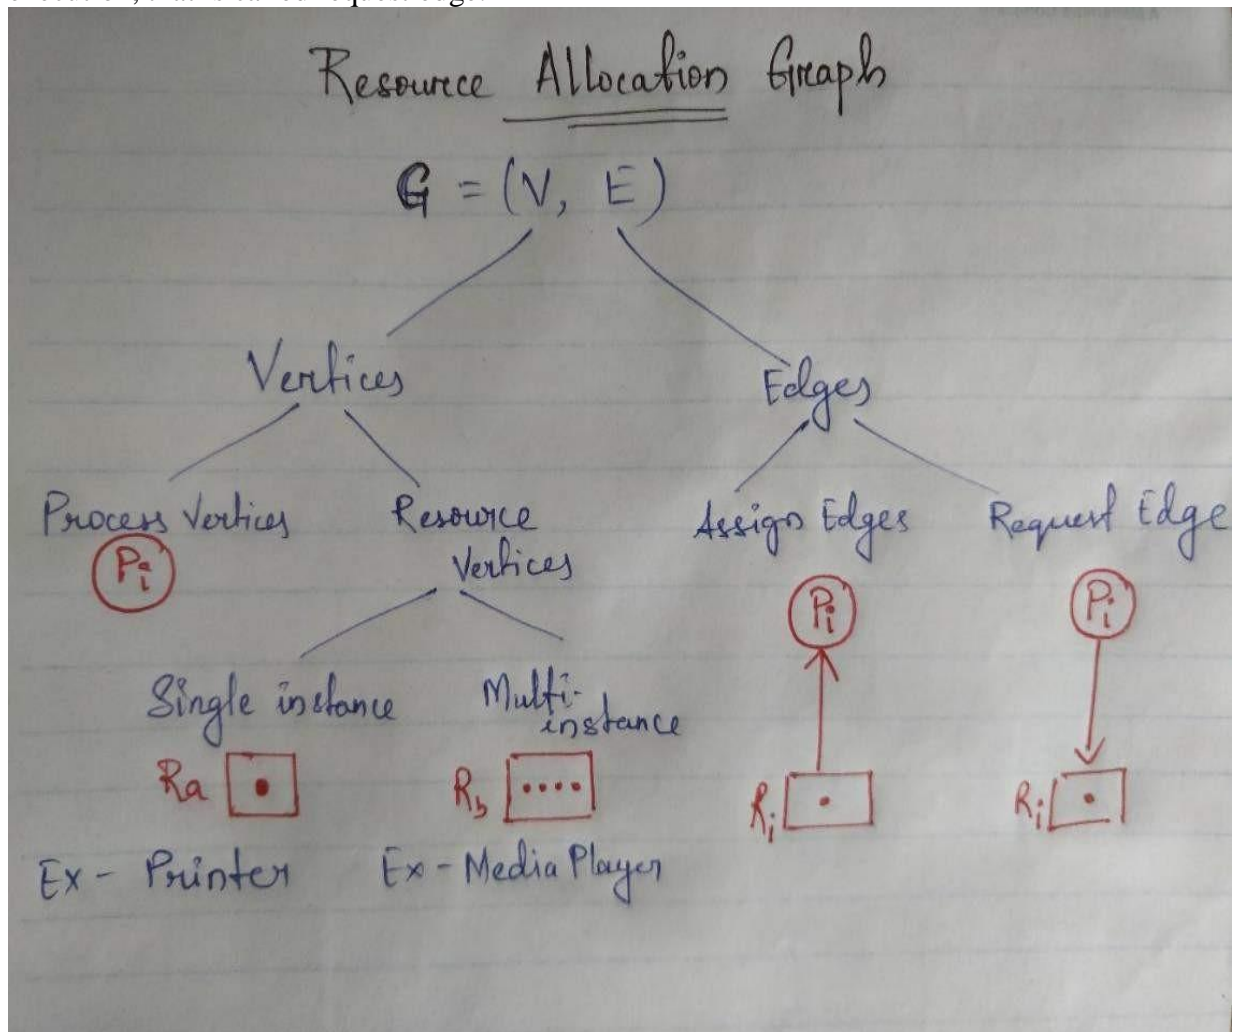 Resource Allocation Graph
G = (V, E)
Vertices
Edges
Process Vertices
Resource
Vertices
Assign Edges
Request Edge
Pi
Pi
Pi
Single instance
Multi-
instance
Ra
Rb
Ri
Ri
Ex - Printer
Ex - Media Player